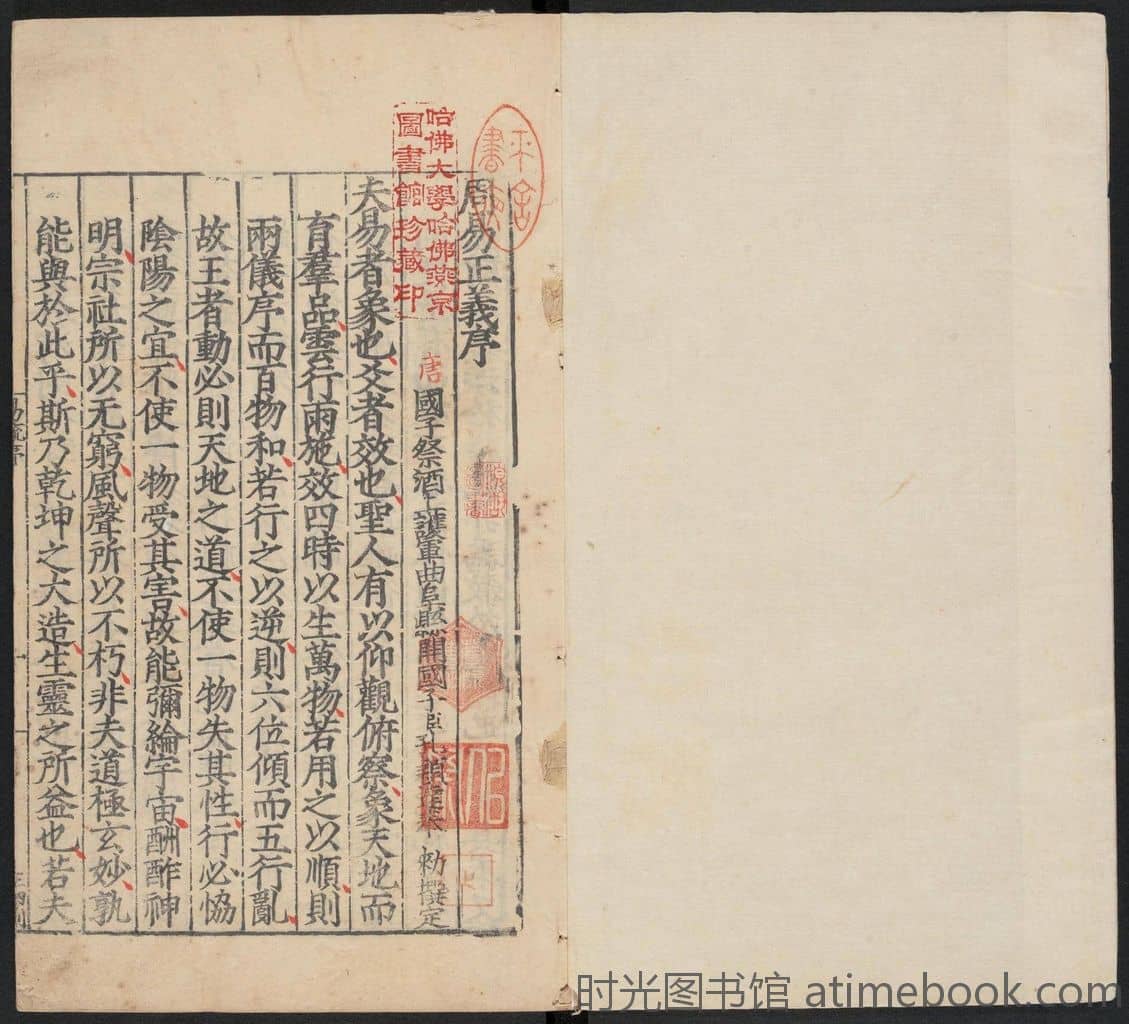 周易正義序
唐國子祭酒上護軍曲阜縣開國子臣孔穎達奉勑撰定
夫易者象也爻者效也聖人有以仰觀俯察象天地而
育羣品雲行雨施效四時以生萬物若用之以順則
兩儀序而百物和若行之以逆則六位傾而五行亂
故王者動必則天地之道不使一物失其性行必恊
陰陽之宜不使一物受其害故能彌綸宇宙酬酢神
明宗社所以无窮風聲所以不朽非夫道極玄妙孰
能與於此乎斯乃乾坤之大造生靈之所益也若夫
易疏序
一
哈佛大學哈佛燕京
圖書館珍藏印
时光图书馆 atimebook.com